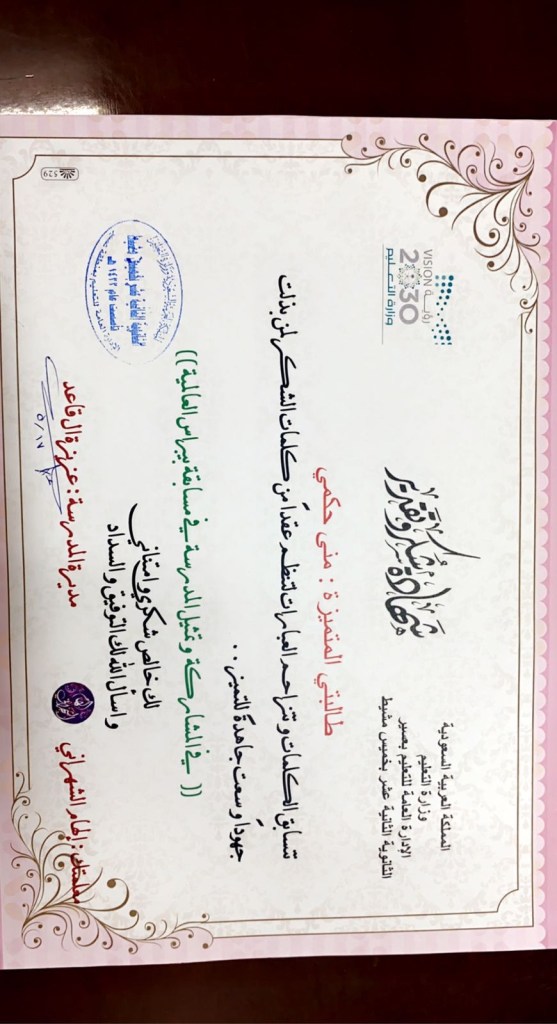 المملكة العربية السعودية
وزارة التعليم
الإدارة العامة للتعليم بعسير
الثانوية الثانية عشر بخميس مشيط
رؤية VISION
2030
وزارة التعليم
شهادة شكر وتقدير
طالبتي المتميزة : منى حكمي
تتسابق الكلمات وتتزاحم العبارات لتنظم عقداً من كلمات الشكر لمن بذلت
جهوداً وسعت جاهدةً للتميز ..
(( في المشاركة وتمثيل المدرسة في مسابقة بيبراس العالمية ))
لك خالص شكري وامتناني
واسأل الله لك التوفيق والسداد
معلمتك : إلهام الشهراني
مديرة المدرسة : عزيزة ال قاعد
٥/١٧
529